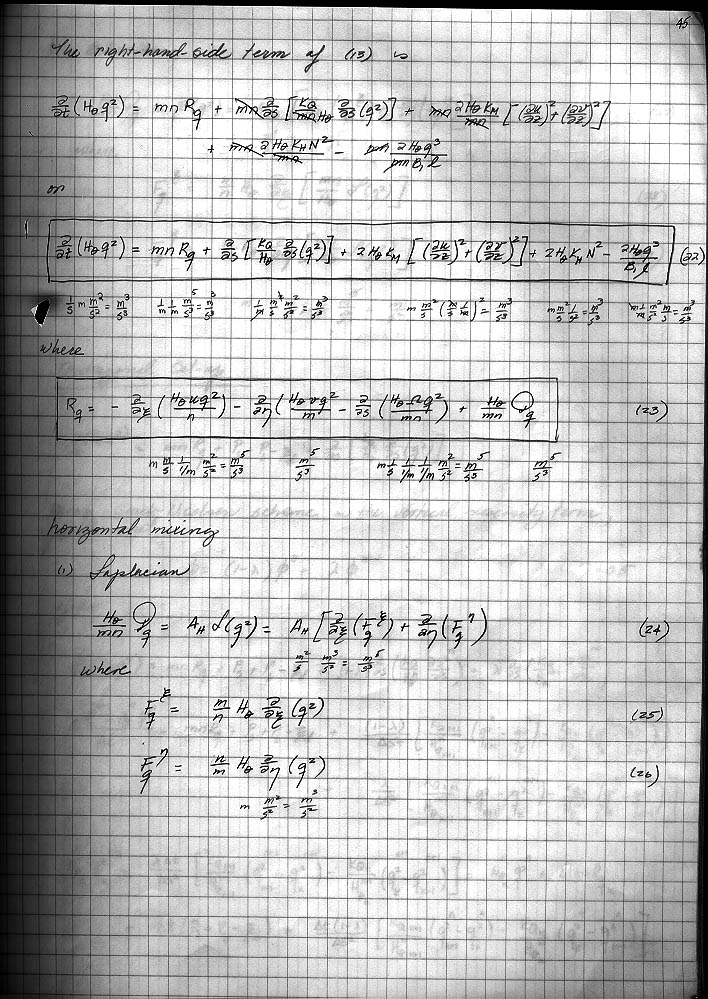 45
The right-hand-side term of (13) is
∂/∂t (H_θ q²) = mn R_q + mn ∂/∂s [K_Q/(mn H_θ) ∂/∂s (q²)] + mn 2H_θ K_M/mn [(∂u/∂z)² + (∂v/∂z)²]
+ mn 2H_θ K_H N²/mn − mn 2H_θ q³/(mn B₁ l)
or
∂/∂t (H_θ q²) = mn R_q + ∂/∂s [K_Q/H_θ ∂/∂s (q²)] + 2H_θ K_M [(∂u/∂z)² + (∂v/∂z)²] + 2H_θ K_H N² − 2H_θ q³/(B₁ l) (22)
1/s m m²/s² = m³/s³ 1/m 1/m m⁵/s³ = m³/s³ 1/m m⁴/s m²/s² = m³/s³ m m²/s (m/s 1/m)² = m³/s³ m m²/s 1/s² = m³/s³
where
R_q = − ∂/∂ξ (H_θ u q²/n) − ∂/∂η (H_θ v q²/m − ∂/∂s (H_θ Ω q²/mn) + H_θ/mn 𝒟_q (23)
m m/s 1/(1/m) m²/s² = m⁵/s³ m⁵/s³ m 1/s 1/(1/m) 1/(1/m) m²/s² = m⁵/s³ m⁵/s³
horizontal mixing
(1) Laplacian
H_θ/mn 𝒟_q = A_H ℒ(q²) = A_H [∂/∂ξ (F_q^ξ) + ∂/∂η (F_q^η) (24)
where m²/s m³/s² = m⁵/s³
F_q^ξ = m/n H_θ ∂/∂ξ (q²) (25)
F_q^η = n/m H_θ ∂/∂η (q²) (26)
m m²/s² = m³/s²